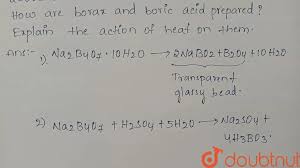 How are borax and boric acid prepared?
Explain the action of heat on them.
Ans:-
1) Na2B4O7 · 10H2O → 2NaBO2 + B2O3 + 10H2O
Transparent
glassy bead.
2) Na2B4O7 + H2SO4 + 5H2O → Na2SO4 +
4H3BO3
doubtnut